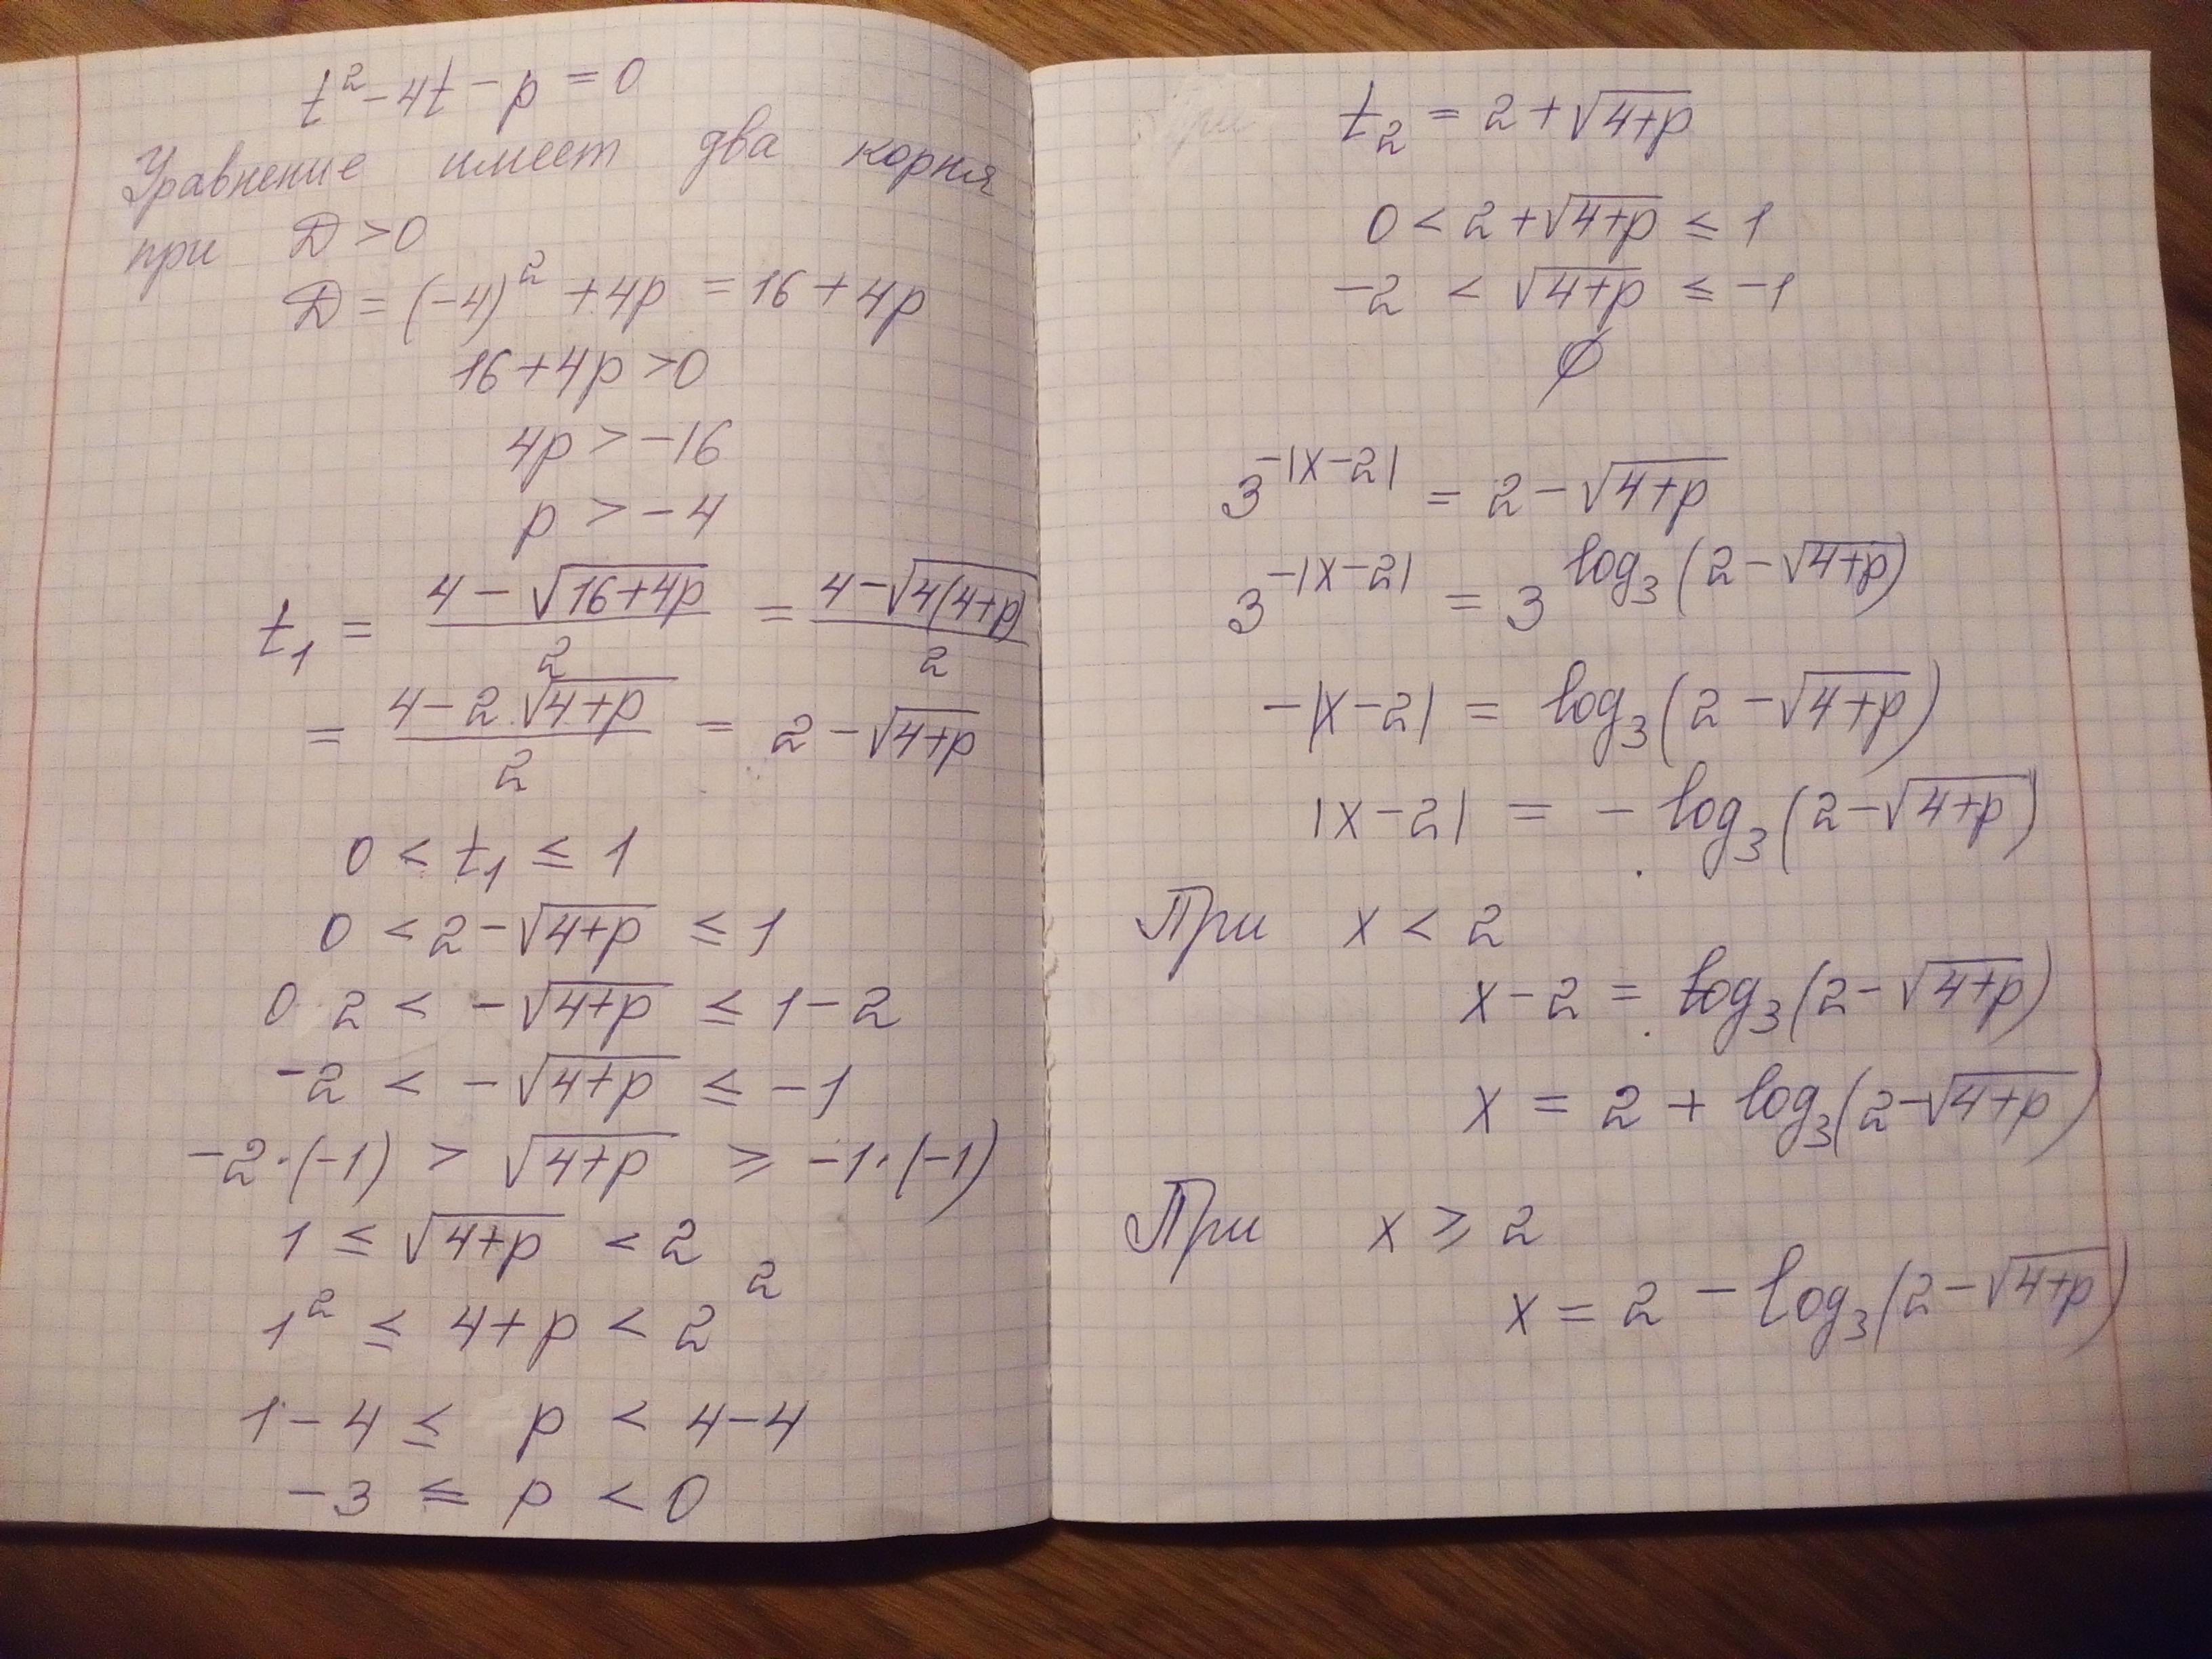 t² - 4t - p = 0
Уравнение имеет два корня
при D > 0
D = (-4)² + 4p = 16 + 4p
16 + 4p > 0
4p > -16
p > -4
t₁ = (4 - √(16+4p))/2 = (4 - √(4(4+p)))/2
= (4 - 2·√(4+p))/2 = 2 - √(4+p)
0 < t₁ ≤ 1
0 < 2 - √(4+p) ≤ 1
0 2 < -√(4+p) ≤ 1 - 2
-2 < -√(4+p) ≤ -1
-2·(-1) > √(4+p) ≥ -1·(-1)
1 ≤ √(4+p) < 2
1² ≤ 4+p < 2²
1 - 4 ≤ p < 4 - 4
-3 ≤ p < 0
t₂ = 2 + √(4+p)
0 < 2 + √(4+p) ≤ 1
-2 < √(4+p) ≤ -1
∅
3^(-|x-2|) = 2 - √(4+p)
3^(-|x-2|) = 3^(log₃(2 - √(4+p)))
-|x-2| = log₃(2 - √(4+p))
|x-2| = - log₃(2 - √(4+p))
При x < 2
x - 2 = log₃(2 - √(4+p))
x = 2 + log₃(2 - √(4+p))
При x ≥ 2
x = 2 - log₃(2 - √(4+p))